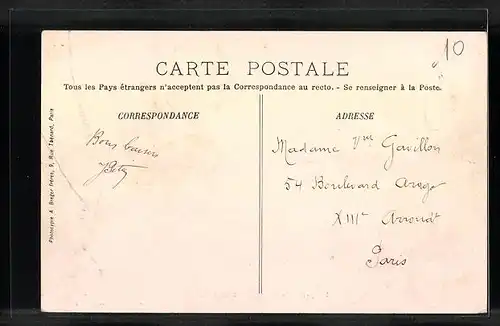 10
CARTE POSTALE
Tous les Pays étrangers n'acceptent pas la Correspondance au recto. - Se renseigner à la Poste.
CORRESPONDANCE
ADRESSE
Bons baisers
Madame Vve Gavillon
54 Boulevard Arago
XIIIe Arrondt
Paris
Phototypie A. Breger frères, 9, Rue Thénard, Paris